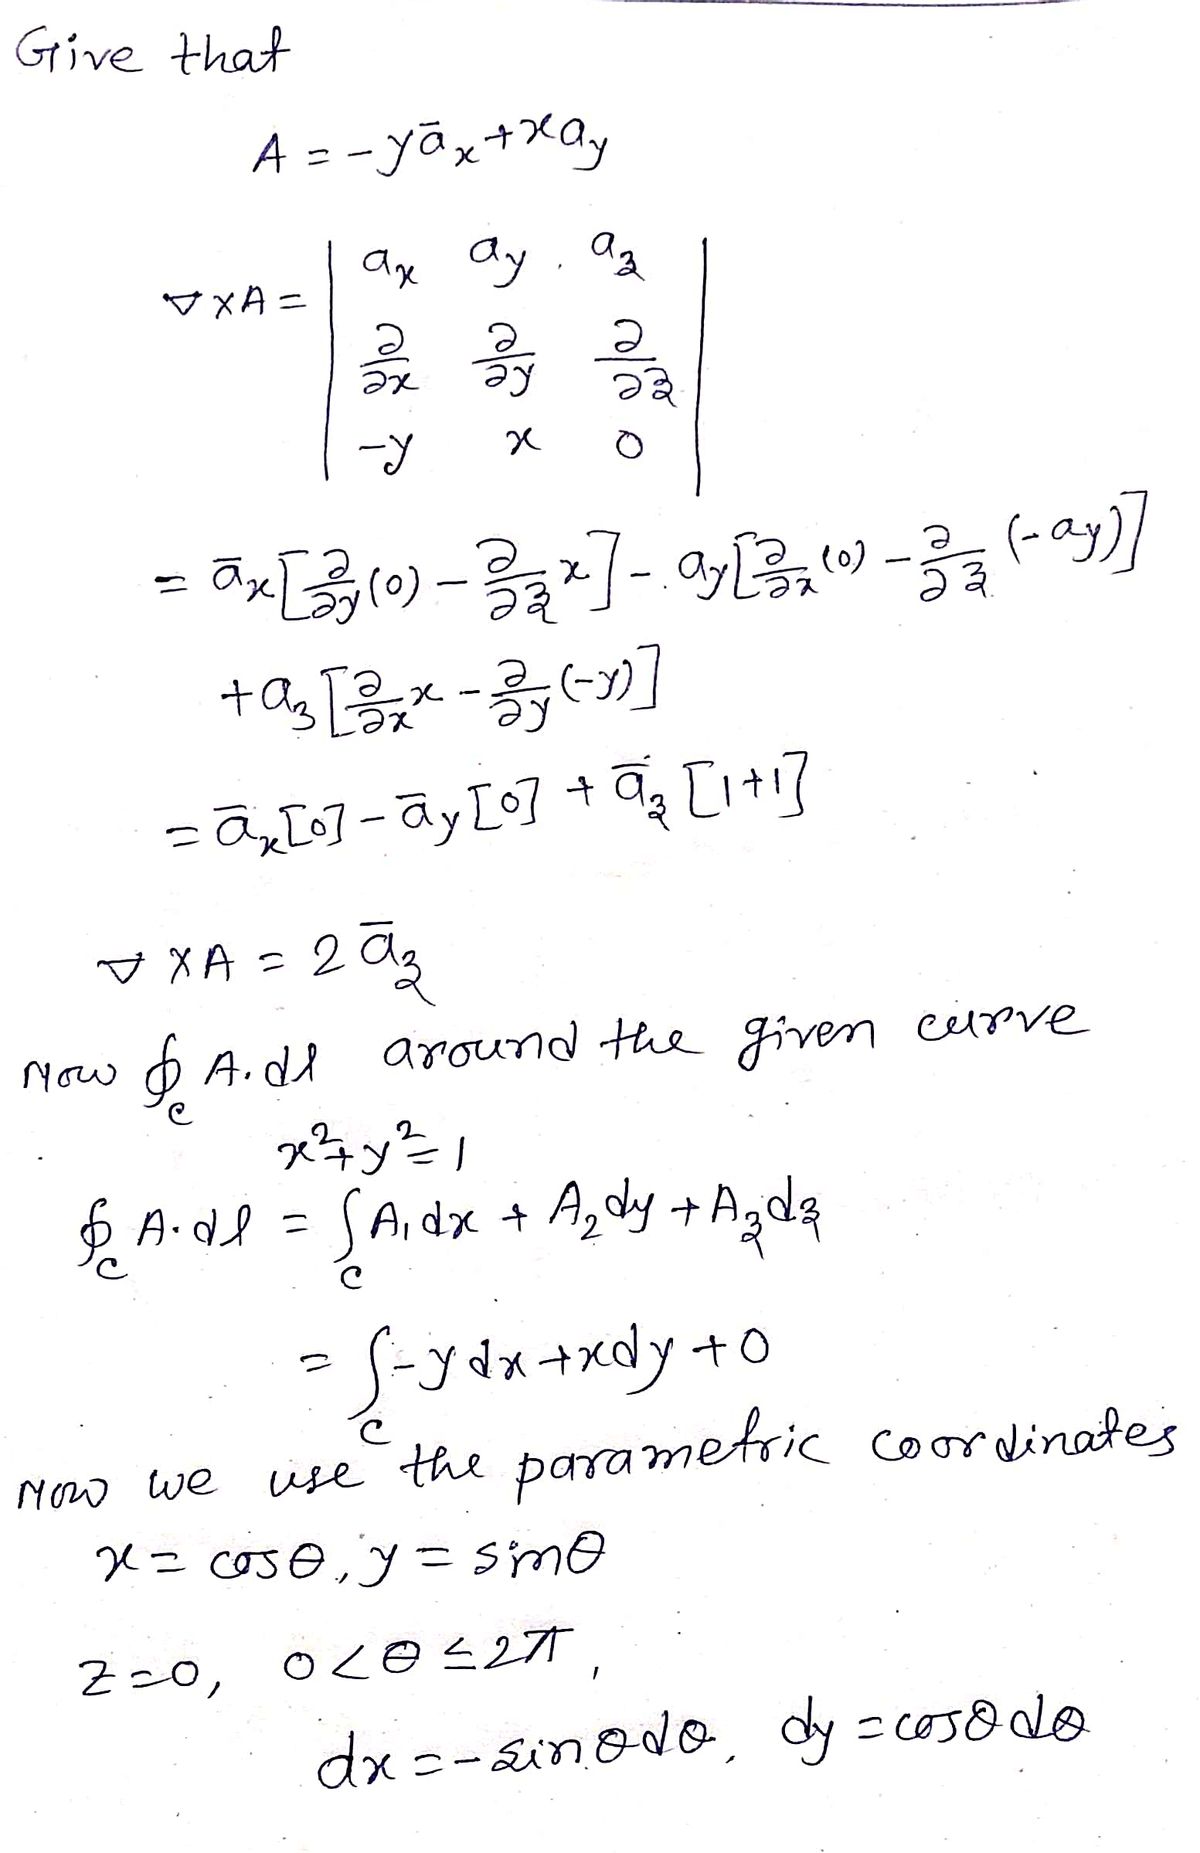 Give that
A = -yāx + xay
∇ × A = | ax ay . az |
| ∂/∂x ∂/∂y ∂/∂z |
| -y x 0 |
= āx[∂/∂y(0) - ∂/∂z x] - ay[∂/∂x(0) - ∂/∂z(-ay)]
+ az[∂/∂x x - ∂/∂y(-y)]
= āx[0] - āy[0] + āz[1+1]
∇ × A = 2āz
Now ∮c A.dl around the given curve
x² + y² = 1
∮c A.dl = ∫c A₁dx + A₂dy + A₃dz
= ∫c -ydx + xdy + 0
Now we use the parametric coordinates
x = cosθ, y = sinθ
z = 0, 0 < θ ≤ 2π,
dx = -sinθdθ, dy = cosθdθ